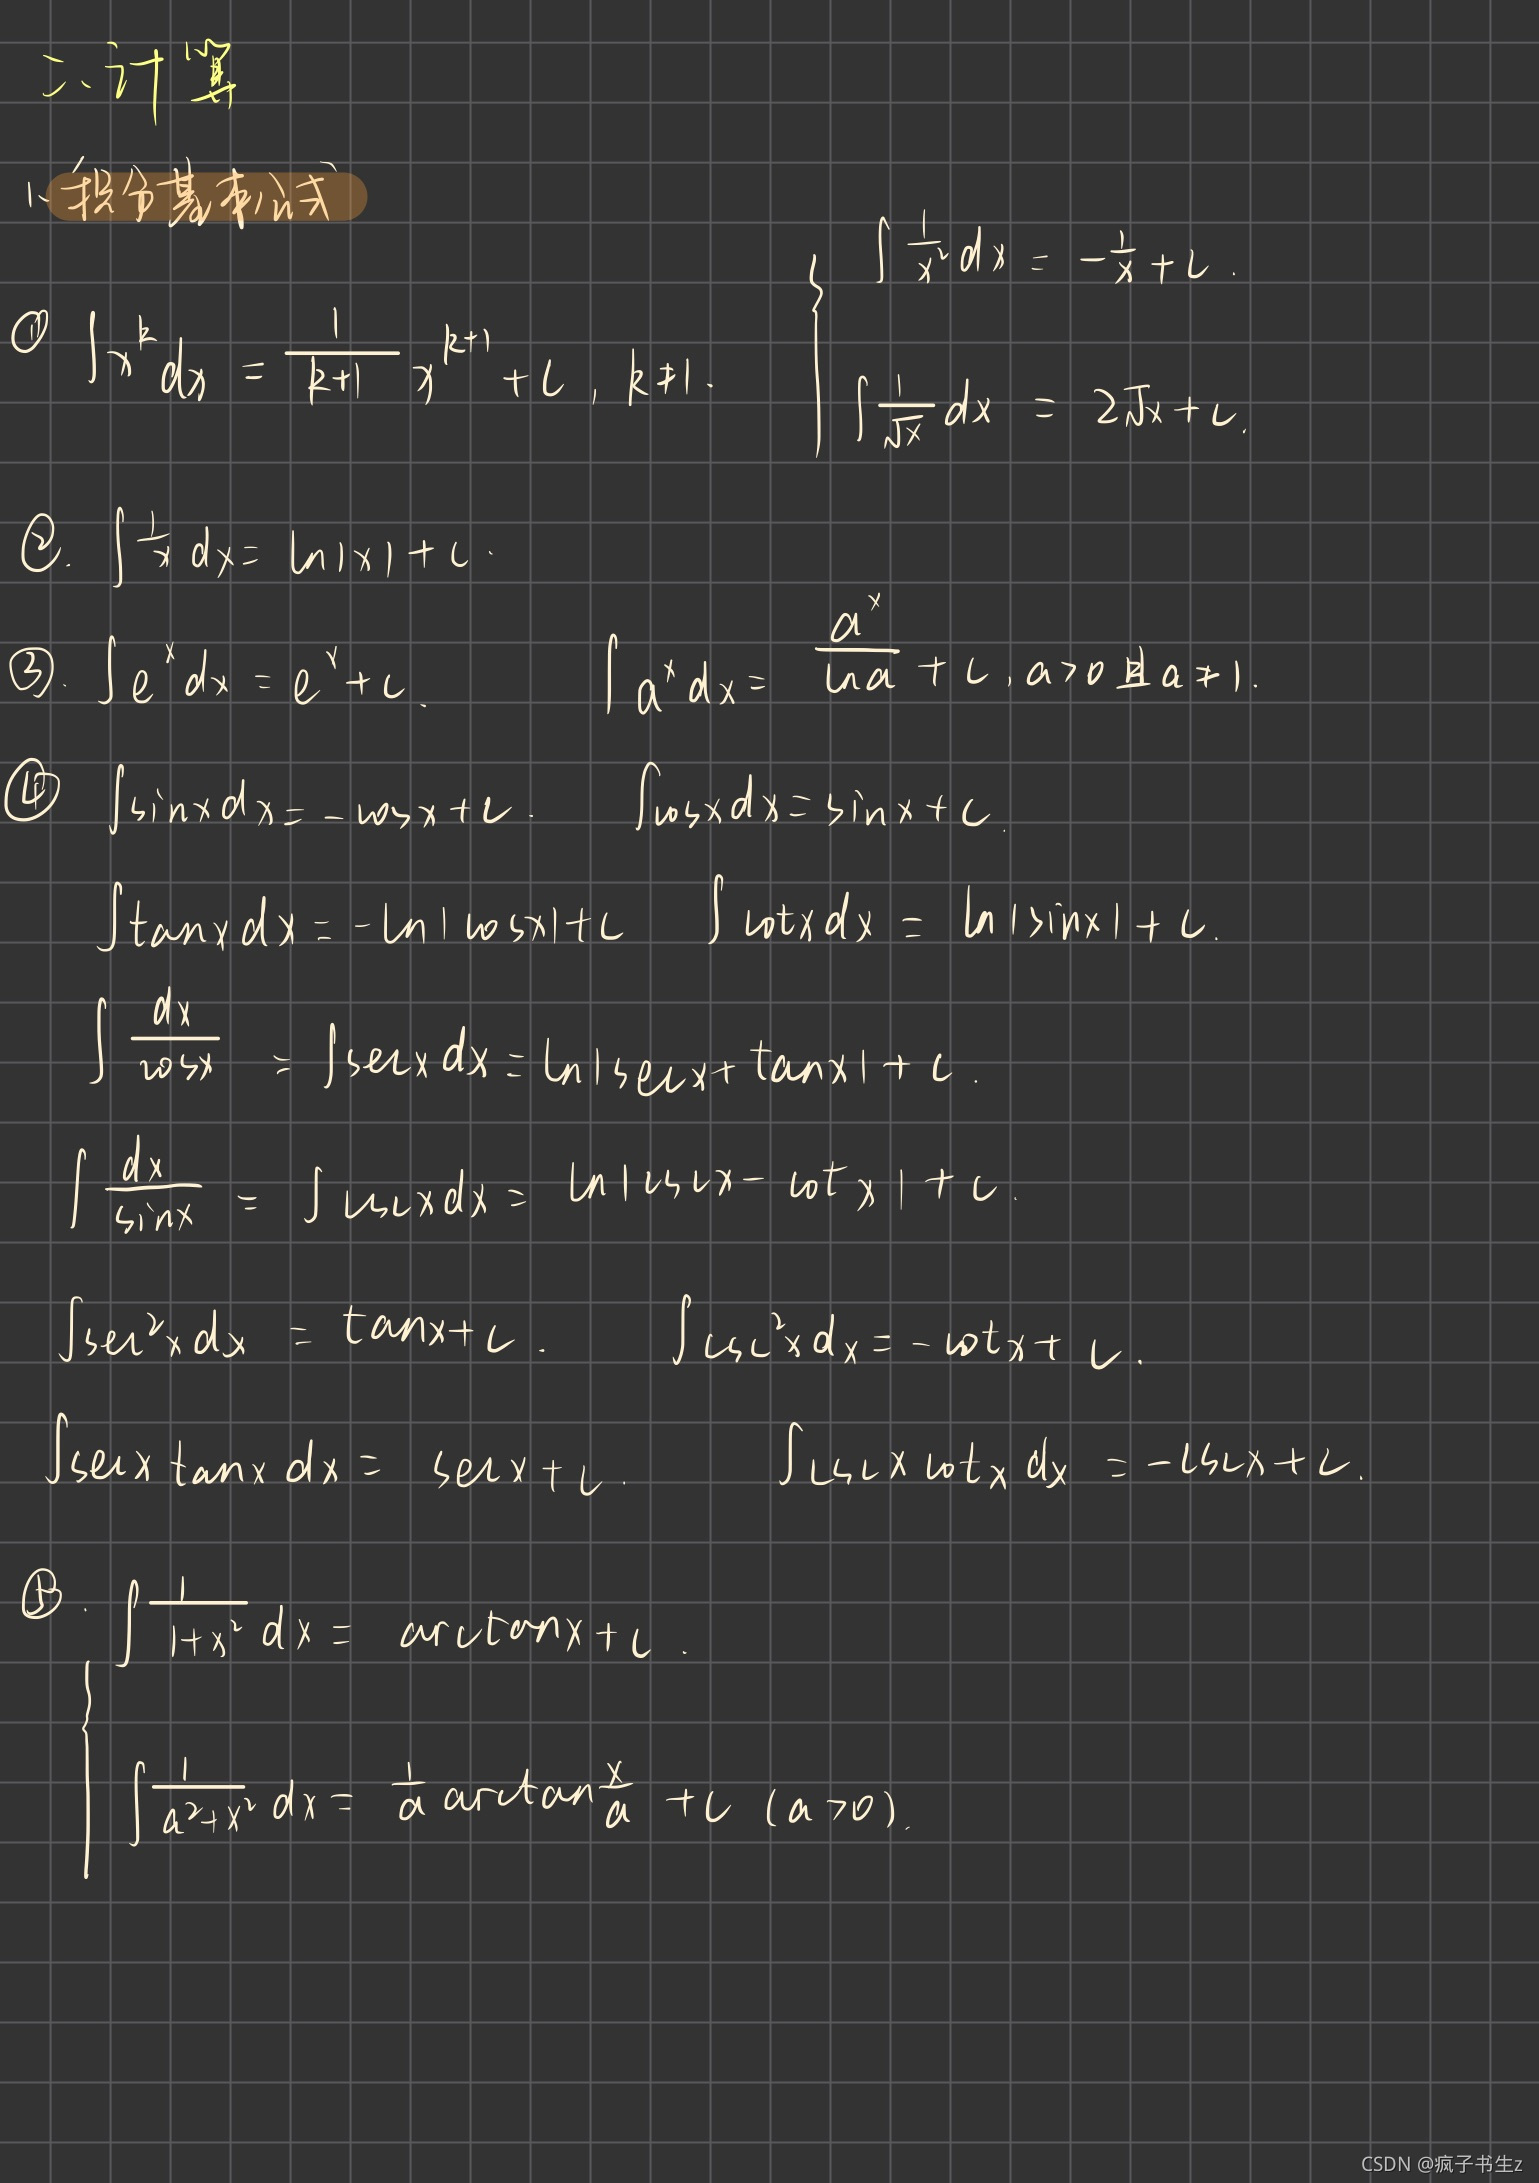 二、计算
1、积分基本公式
① ∫x^k dx = 1/(k+1) x^(k+1) + C, k≠1.
{ ∫1/x² dx = -1/x + C.
∫1/√x dx = 2√x + C.
②. ∫1/x dx = ln|x| + C.
③. ∫e^x dx = e^x + C. ∫a^x dx = a^x/lna + C, a>0且a≠1.
④ ∫sinx dx = -cosx + C. ∫cosx dx = sinx + C.
∫tanx dx = -ln|cosx| + C ∫cotx dx = ln|sinx| + C.
∫dx/cosx = ∫secx dx = ln|secx + tanx| + C.
∫dx/sinx = ∫cscx dx = ln|cscx - cotx| + C.
∫sec²x dx = tanx + C. ∫csc²x dx = -cotx + C.
∫secx tanx dx = secx + C. ∫cscx cotx dx = -cscx + C.
⑤. { ∫1/(1+x²) dx = arctanx + C.
∫1/(a²+x²) dx = 1/a arctan x/a + C (a>0).
CSDN @疯子书生z